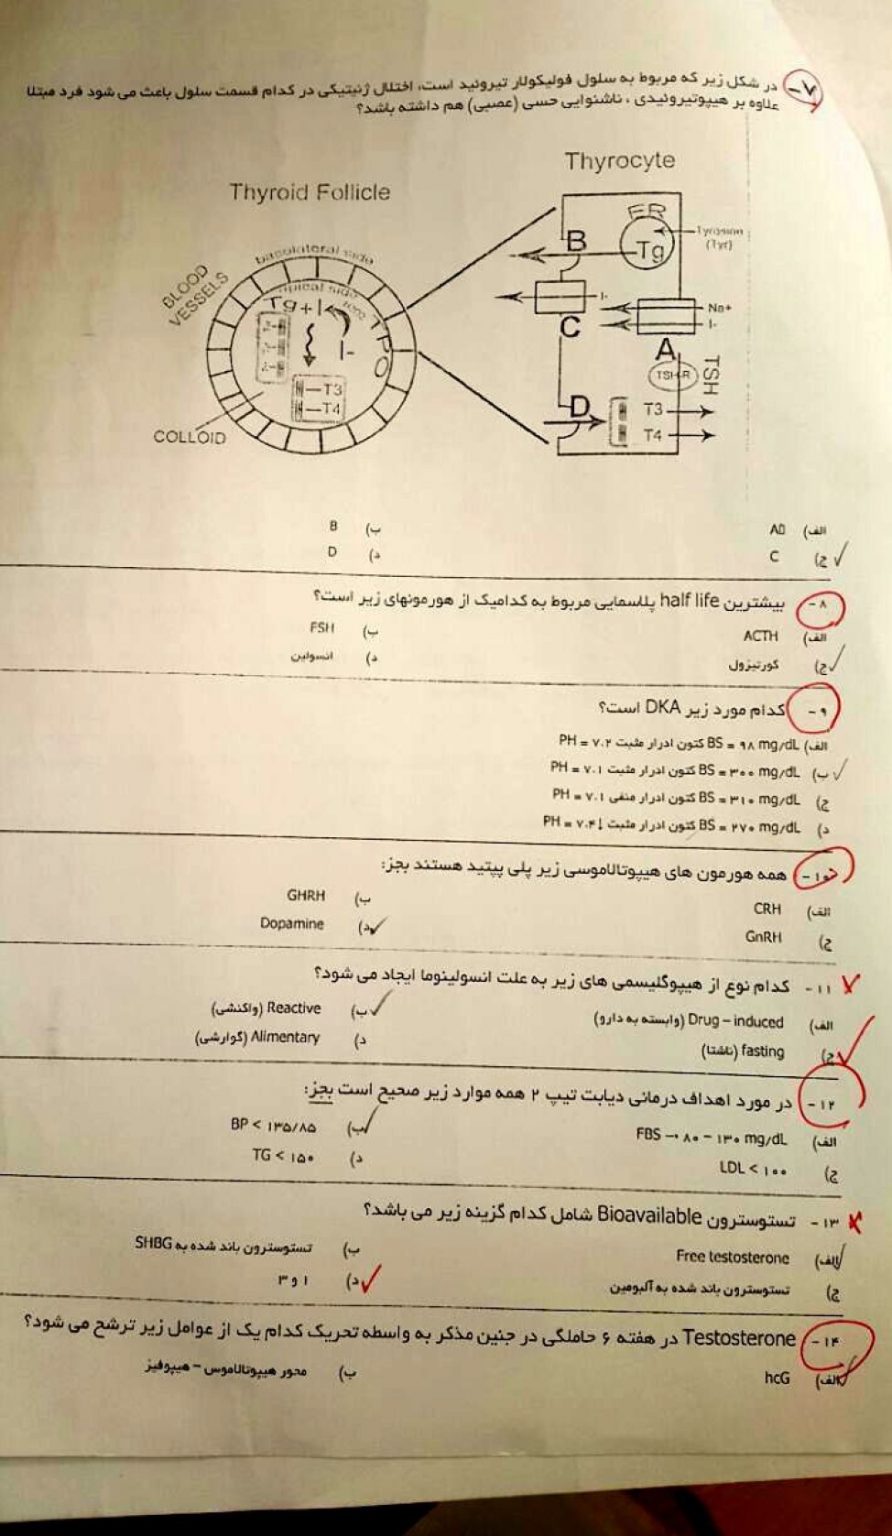 ۷- در شکل زیر که مربوط به سلول فولیکولار تیروئید است، اختلال ژنیتیکی در کدام قسمت سلول باعث می شود فرد مبتلا
علاوه بر هیپوتیروئیدی ، ناشنوایی حسی (عصبی) هم داشته باشد؟
Thyroid Follicle
Thyrocyte
basolateral side
BLOOD
VESSELS
apical side
Tg+I
TPO
I-
T3
T4
COLLOID
ER
Tg
Tyrosion
(Tyr)
B
I-
Na+
I-
C
A
TSH-R
TSH
D
T3
T4
الف) A
ب) B
ج) C
د) D
۸- بیشترین half life پلاسمایی مربوط به کدامیک از هورمونهای زیر است؟
الف) ACTH
ب) FSH
ج) کورتیزول
د) انسولین
۹- کدام مورد زیر DKA است؟
الف) BS = ۹۸ mg/dL کتون ادرار مثبت PH = ۷.۲
ب) BS = ۳۰۰ mg/dL کتون ادرار مثبت PH = ۷.۱
ج) BS = ۳۱۰ mg/dL کتون ادرار منفی PH = ۷.۱
د) BS = ۲۷۰ mg/dL کتون ادرار مثبت PH = ۷.۴
۱۰- همه هورمون های هیپوتالاموسی زیر پلی پپتید هستند بجز:
الف) CRH
ب) GHRH
ج) GnRH
د) Dopamine
۱۱- کدام نوع از هیپوگلیسمی های زیر به علت انسولینوما ایجاد می شود؟
الف) Drug – induced (وابسته به دارو)
ب) Reactive (واکنشی)
ج) fasting (ناشتا)
د) Alimentary (گوارشی)
۱۲- در مورد اهداف درمانی دیابت تیپ ۲ همه موارد زیر صحیح است بجز:
الف) FBS → ۸۰ – ۱۳۰ mg/dL
ب) BP < ۱۳۵/۸۵
ج) LDL < ۱۰۰
د) TG < ۱۵۰
۱۳- تستوسترون Bioavailable شامل کدام گزینه زیر می باشد؟
الف) Free testosterone
ب) تستوسترون باند شده به SHBG
ج) تستوسترون باند شده به آلبومین
د) ۱ و ۳
۱۴- Testosterone در هفته ۶ حاملگی در جنین مذکر به واسطه تحریک کدام یک از عوامل زیر ترشح می شود؟
الف) hcG
ب) محور هیپوتالاموس – هیپوفیز